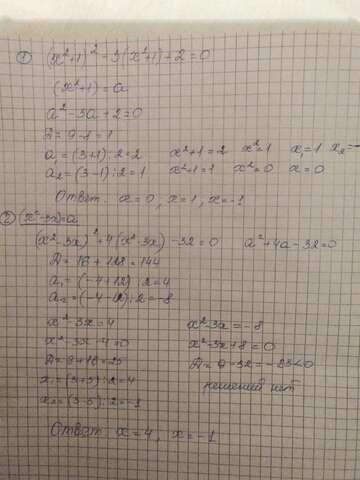 ① (x²+1)² - 3(x²+1)+2=0
(x²+1) = a
a² - 3a + 2 = 0
D = 9-8 = 1
a₁ = (3+1):2 = 2    x²+1 = 2    x²=1    x₁=1    x₂=-
a₂ = (3-1):2 = 1    x²+1=1    x²=0    x=0
Ответ: x=0, x=1, x=-1
② (x²-3x)=a
(x²-3x)²+4(x²-3x) - 32=0    a²+4a-32=0
D = 16 + 128 = 144
a₁ = (-4+12):2=4
a₂ = (-4-12):2=-8
x²-3x=4    x²-3x=-8
x²-3x-4=0    x²-3x+8=0
D=9+16=25    D=9-32=-23<0
x₁=(3+5):2=4    решений нет
x₂=(3-5):2=-1
Ответ: x=4, x=-1